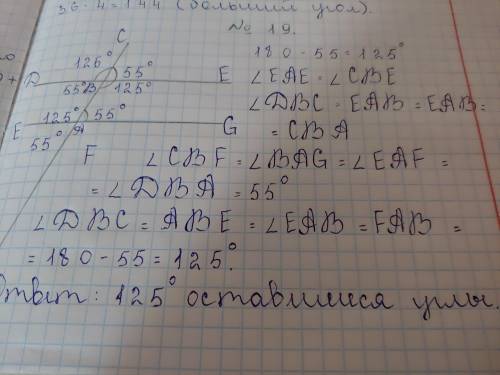 36·4=144 (больший угол).
№ 19.
C
125° 55°
D E
55° B 125°
E 125° 55°
55° A G
F
180-55=125°
∠EAE=∠CBE
∠DBC=EAB=EAB=
=CBA
∠CBF=∠BAG=∠EAF=
=∠DBA=55°
∠DBC=ABE=∠EAB=FAB=
=180-55=125°.
Ответ: 125° оставшииса углы.